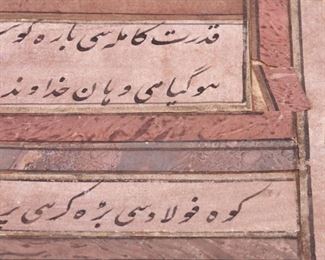 قدرت کاملہ سی بارہ کو
ہوگیا می وہان خداوند
کوہ فولاد سی بڑہ کر ہی